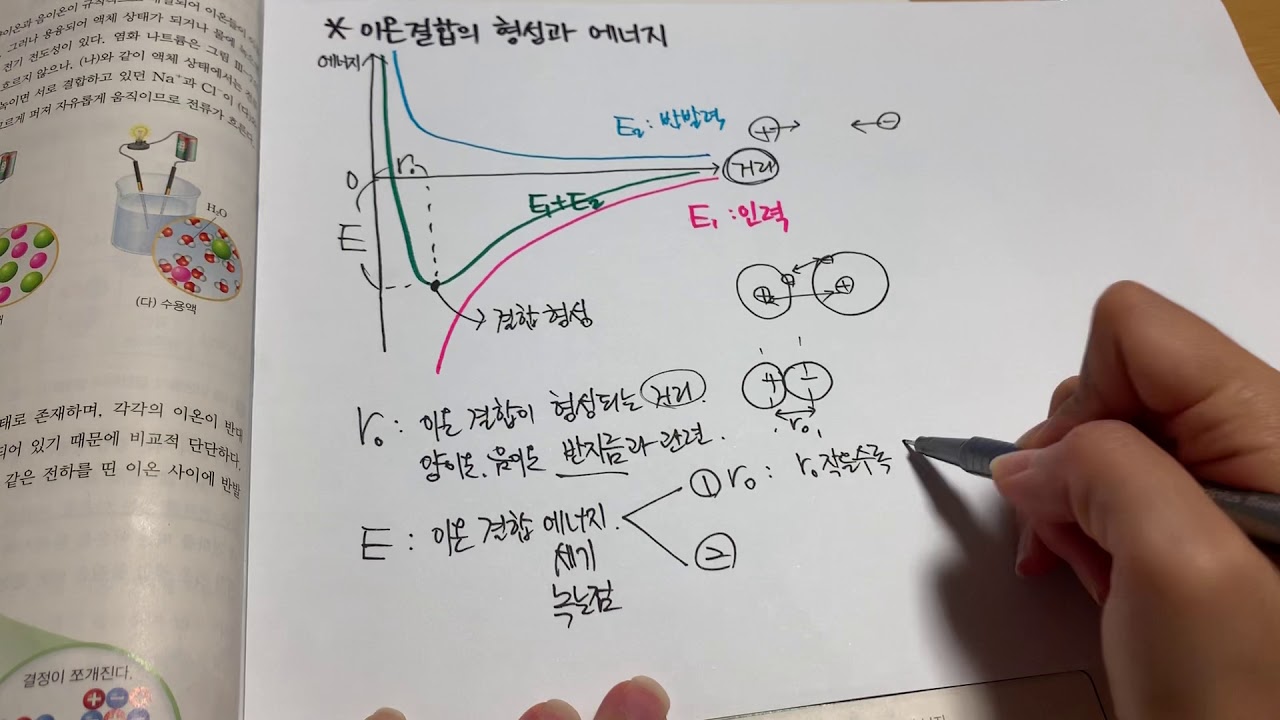 그러나 용융되어 액체 상태가 되거나 물에
전기 전도성이 있다. 염화 나트륨은 그림 Ⅲ-
흐르지 않으나, (나)와 같이 액체 상태에서는
녹이면 서로 결합하고 있던 Na⁺과 Cl⁻이 (다)
고르게 퍼져 자유롭게 움직이므로 전류가 흐른다.
H₂O
(다) 수용액
태로 존재하며, 각각의 이온이 반대
되어 있기 때문에 비교적 단단하다.
같은 전하를 띤 이온 사이에 반발
결정이 쪼개진다.
+ −
* 이온결합의 형성과 에너지
에너지
E₂ : 반발력
+ −
r₀
0
거리
E₁+E₂
E₁ : 인력
E
+ +
결합 형성
+ −
r₀
r₀ : 이온 결합이 형성되는 거리.
양이온, 음이온 반지름과 관련.
E : 이온 결합 에너지.
세기
녹는점
① r₀ : r₀ 작을수록
②